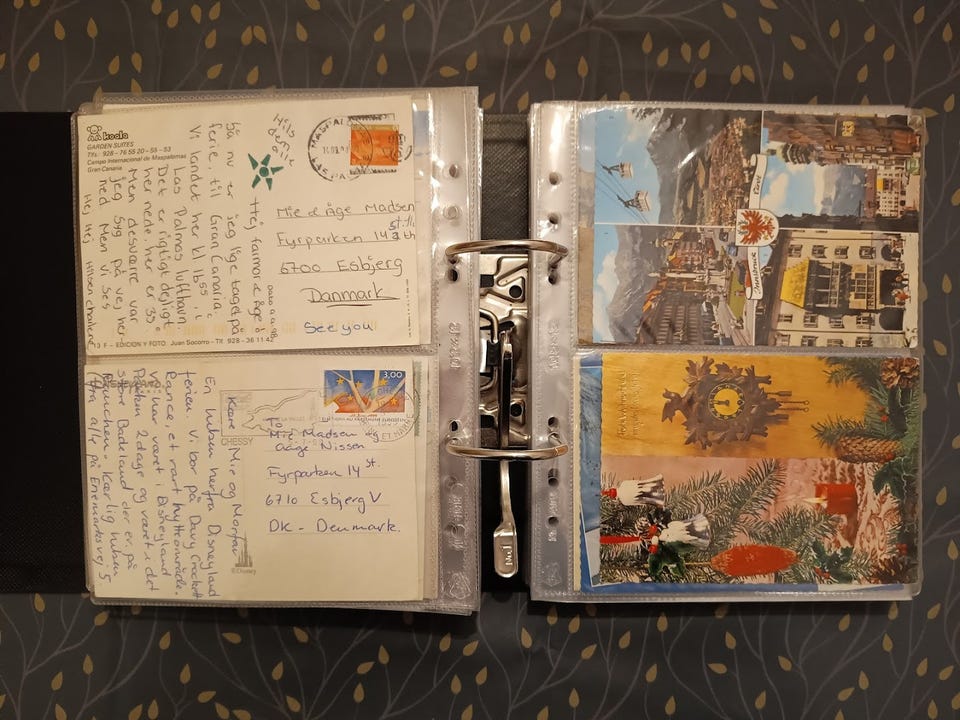 koala
GARDEN SUITES
Tfs. - 928 - 76 55 20 - 55 - 53
Campo Internacional de Maspalomas
Gran Canaria
Hils
de andre
Hej farmor & Åge!
Så nu er jeg lige taget på
ferie, til Gran Canaria.
Vi landet her kl 1855, i
Las Palmas lufthavn.
Det er rigtigt dejligt
her nede. her er 35.
Men desværre var
jeg syg på vej her-
ned. Men Vi ses
Hej Hej
Mie & Åge Madsen
Fyrparken 14 3 th
6700 Esbjerg
Danmark
See you
F - EDICION Y FOTO: Juan Socorro - Tf. 928 - 36 11 42
3,00
CHESSY
Kære Mir og Morfar
En hilsen herfra Disneyland
ferien. Vi bor på Davy Crockett
Rance, et rart hytteområde.
Vi har været i Disneyland
Parken 2 dage og været i det
store Badeland der er på
Ranchen. Kærlig hilsen
fra alle på Enemarksvej 5
©Disney
Mie Madsen og
Aage Nissen
Fyrparken 14 st.
6710 Esbjerg V
DK - Denmark.
Tirol
Innsbruck